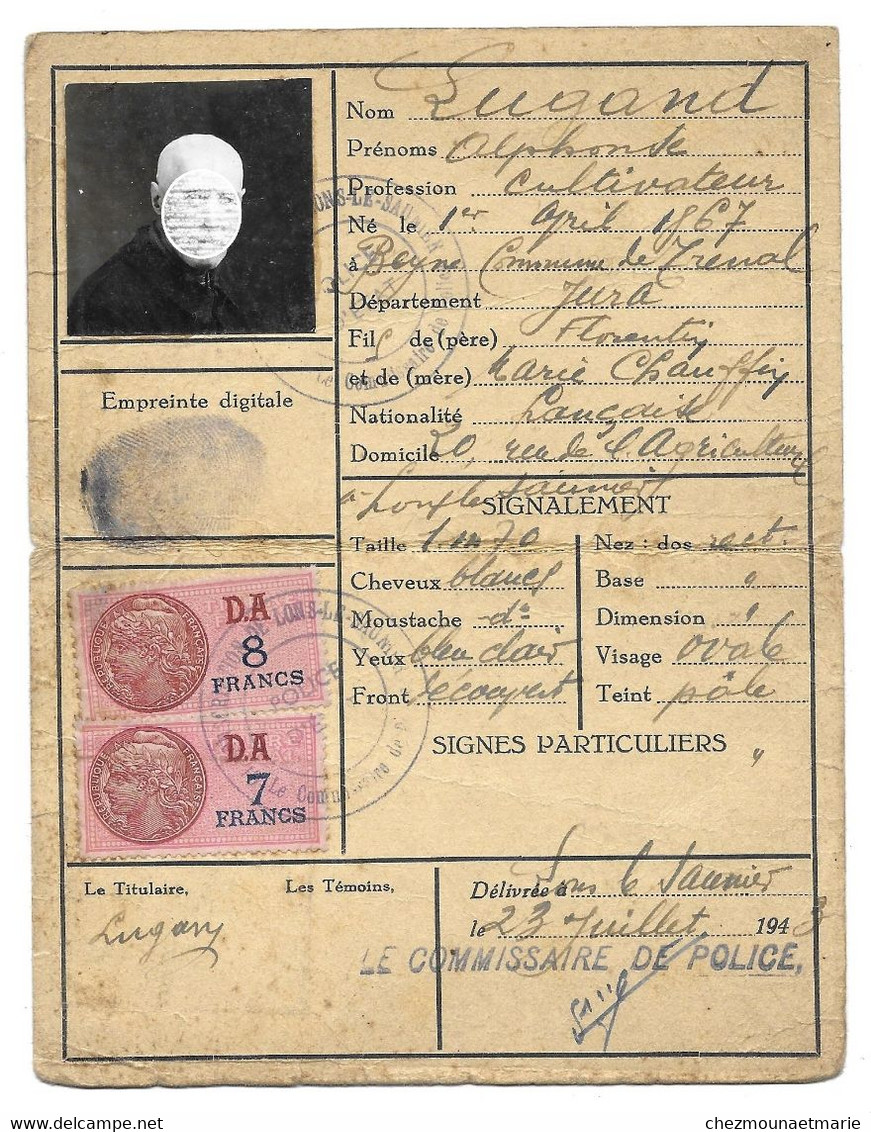 Nom Lugand
Prénoms Alphonse
Profession Cultivateur
Né le 1er Avril 1867
à Beyne Commune de Trenal
Département Jura
Fils de (père) Florentin
et de (mère) Marie Chauffin
Nationalité Française
Domicile 20, rue de l'Agriculture
à Lons le Saunier
Empreinte digitale
SIGNALEMENT
Taille 1m70
Cheveux blancs
Moustache -do-
Yeux bleu clair
Front découvert
Nez : dos rect.
Base "
Dimension "
Visage ovale
Teint pâle
SIGNES PARTICULIERS "
D.A
8
FRANCS
RÉPUBLIQUE FRANÇAISE
D.A
7
FRANCS
RÉPUBLIQUE FRANÇAISE
LONS-LE-SAUNIER
POLICE
Le Commissaire de
Le Titulaire,
Lugand
Les Témoins,
Délivrée à Lons le Saunier
le 23 Juillet 1943
LE COMMISSAIRE DE POLICE,
chezmounaetmarie